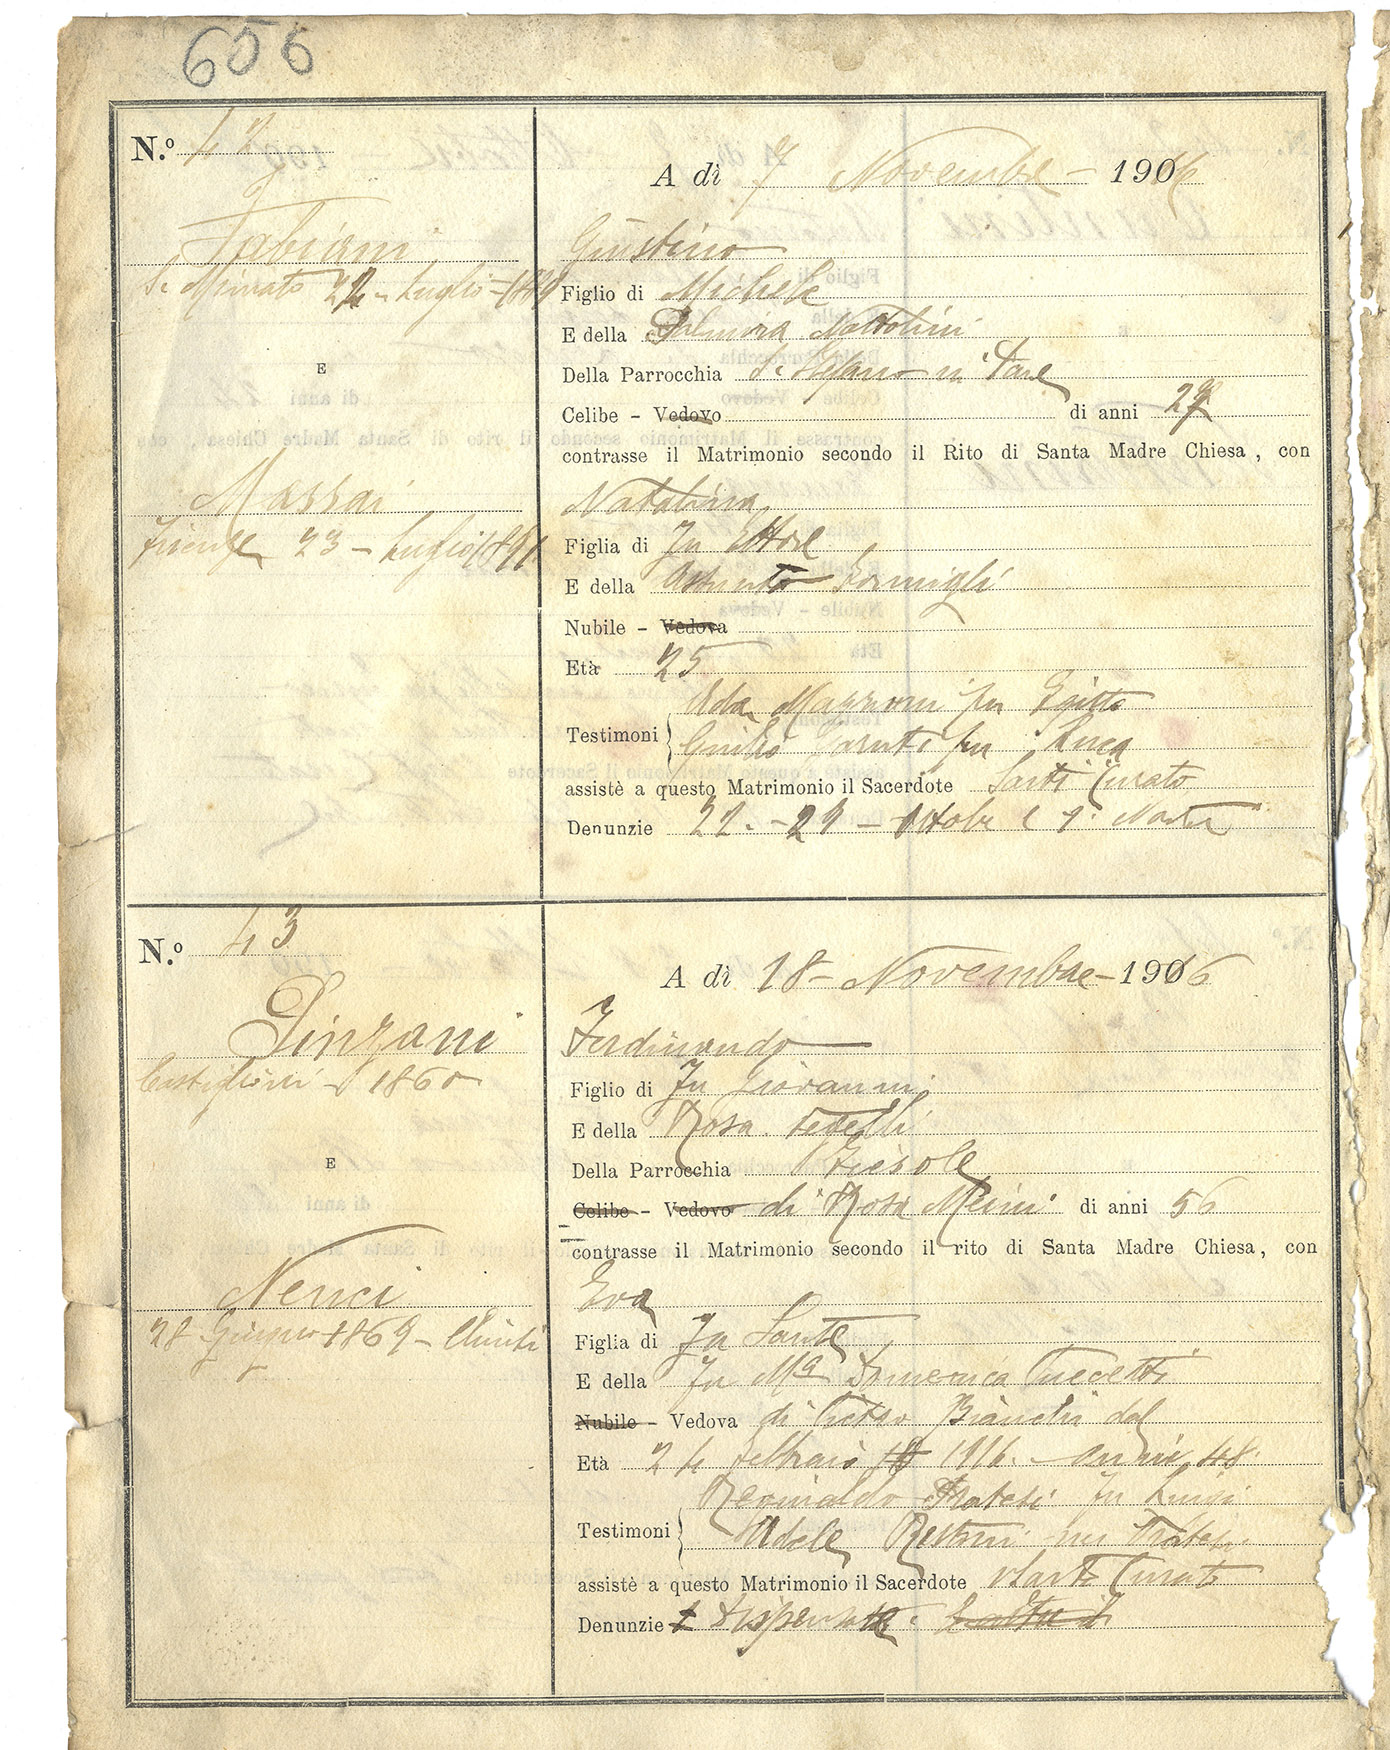 656
N.º 42
A dì 7 Novembre 1916
Fabiani
S. Miniato 24 - Luglio - 1889
Giustino
Figlio di Michele
E della Palmira Nattolini
Della Parrocchia S. Stefano in Pane
Celibe - Vedovo di anni 27
contrasse il Matrimonio secondo il Rito di Santa Madre Chiesa, con
E
Massai
Firenze 23 - Luglio 1891
Natalina
Figlia di fu Ettore
E della Assunta Formigli
Nubile - Vedova
Età 25
Testimoni Ada Mazzoni fu Egitto
Giulio fu Luca
assistè a questo Matrimonio il Sacerdote Sarti Curato
Denunzie 22. - 29 - Ottobre e 1.
N.º 43
A dì 18 - Novembre - 1916
Pinzani
Castiglioni 1860
Ferdinando
Figlio di fu Giovanni
E della Rosa Fedelli
Della Parrocchia Fiesole
Celibe - Vedovo di Rosa Meini di anni 56
contrasse il Matrimonio secondo il rito di Santa Madre Chiesa, con
E
Nenci
28 Giugno 1869 -
Eva
Figlia di fu Sante
E della fu Mª Domenica
Nubile - Vedova di Pietro Bianchi dal
Età 24 febbraio 1916. - anni 48
Testimoni Reginaldo Fratesi fu Luigi
Adele
assistè a questo Matrimonio il Sacerdote Sarti Curato
Denunzie Dispensate.